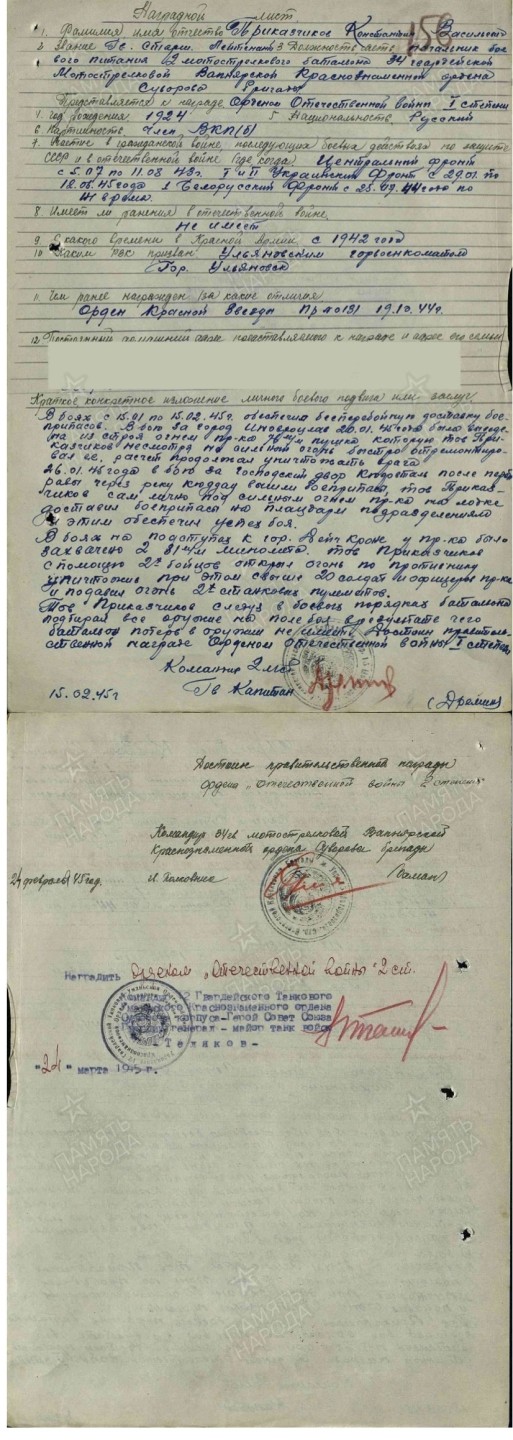 Наградной лист.
156
1. Фамилия имя отчество Приказчиков Константин Васильевич
2 Звание Гв. Старш. Лейтенант 3 Должность часть начальник бое-
вого питания 2 мотострелкового батальона 34 гвардейской
Мотострелковой Вапнярской Краснознаменной ордена
Суворова бригады
Представляется к награде Орденом Отечественной войны I степени
4. год рождения 1924 5 Национальность Русский
6 Партийность Член ВКП(б)
7. Участие в гражданской войне, последующих боевых действиях по защите
СССР и в отечественной войне (где, когда) Центральной фронт
с 5.07 по 11.08 43г. I и II Украинский Фронт с 29.01 по
1 Белорусский Фронт с по
н/время.
8. Имеет ли ранения в отечественной войне
не имеет
9 С какого времени в Красной Армии с 1942 года
10 Каким РВК призван Ульяновским горвоенкоматом
Гор. Ульяновск
11. Чем ранее награжден (за какие отличия
Орден Красной Звезды Пр №0131 19.10.44г.
12 Постоянный домашний адрес представляемого к награде и адрес его семьи
Краткое конкретное изложение личного боевого подвига или заслуг
В боях с 15.01 по 15.02.45г. обеспечил бесперебойную доставку бое-
припасов. В бою за город Иновроцлав 20.01.45 года была выведе-
на из строя огнем пр-ка 76 м/м пушка которую тов При-
казчиков несмотря на сильный огонь быстро отремонтиро-
вал ее, расчет продолжал уничтожать врага
26.01.45 года в бою за Господский двор после пере-
правы через реку вышли боеприпасы, тов Приказ-
чиков сам лично под сильным огнем пр-ка на лодке
доставил боеприпасы на плацдарм подразделению
и этим обеспечил успех боя.
В боях на подступах к гор. Дейч Кроне у пр-ка было
захвачено 2 81 м/м миномета. тов Приказчиков
с помощью 2х бойцов открыл огонь по противнику
уничтожив при этом свыше 20 солдат и офицеров пр-ка
и подавил огонь 2х станковых пулеметов.
Тов Приказчиков следуя в боевых порядках батальона
подбирал все оружие на поле боя в результате чего
батальон потерь в оружии не имеет Достоин правитель-
ственной награде Орденом Отечественной войны I степени
Командир 2 мсб
15.02.45г Гв Капитан (Дремин)
Достоин правительственной награды
ордена "Отечественной войны 2 степени"
Командир 34 гв мотострелковой Вапнярской
Краснознаменной ордена Суворова бригады
24 февраля 45 год. П. полковник
Наградить орденом "Отечественной войны" 2 ст.
12 Гвардейского Танкового
Краснознаменного ордена
корпуса-Герой Совет Союза
генерал - майор танк войск
- Теляков -
"24" марта 1945 г.
ПАМЯТЬ
НАРОДА